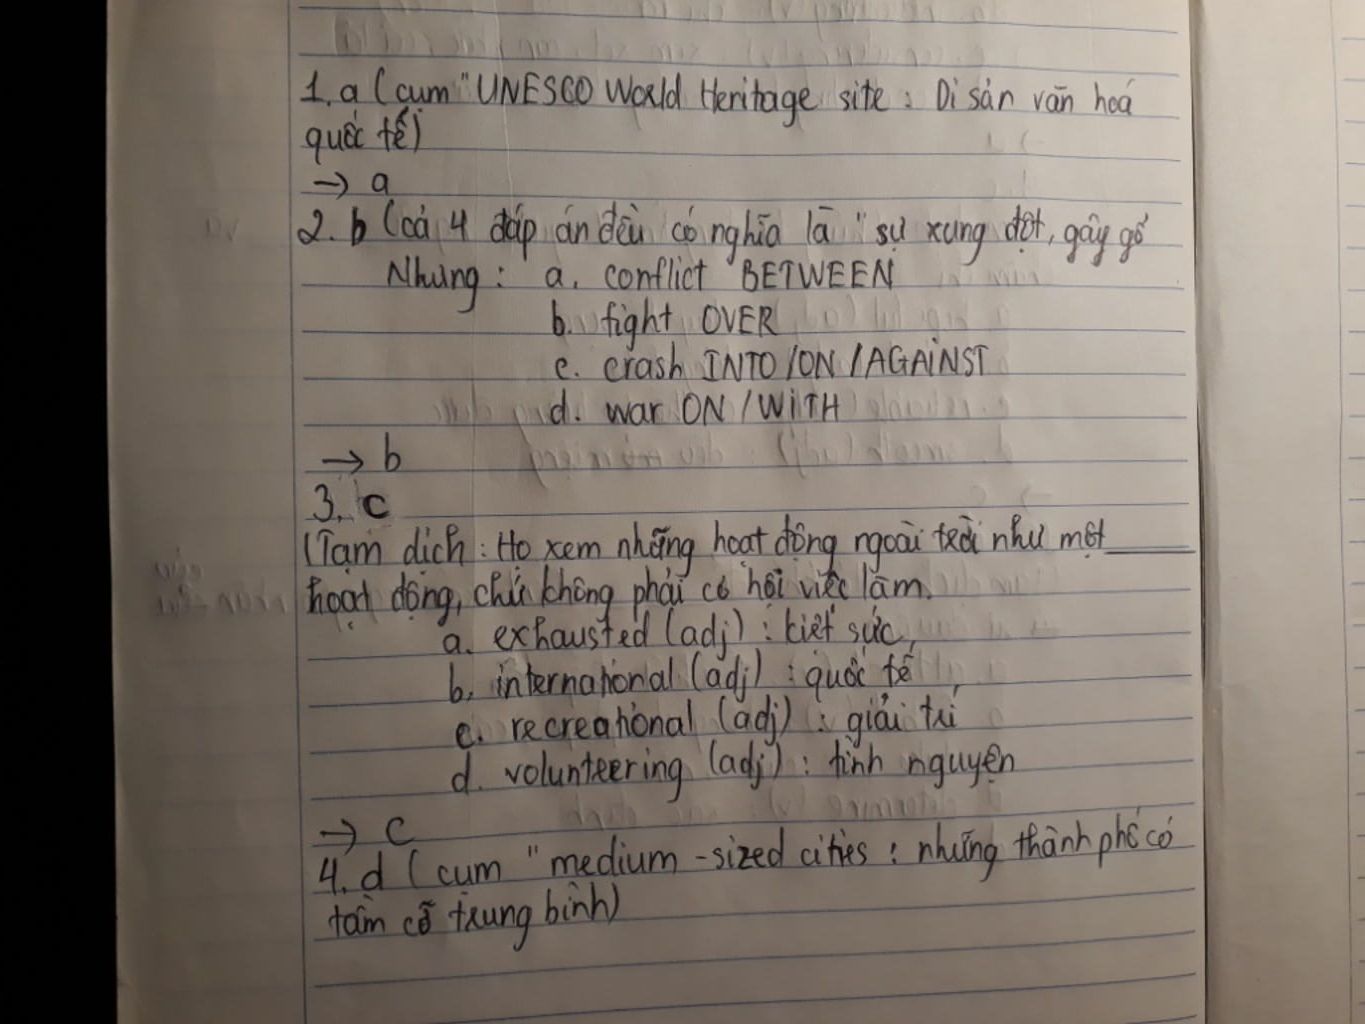 1. a (cụm "UNESCO World Heritage site : Di sản văn hoá
quốc tế)
→ a
2. b (cả 4 đáp án đều có nghĩa là "sự xung đột, gây gổ
Nhưng : a. conflict BETWEEN
b. fight OVER
c. crash INTO /ON /AGAINST
d. war ON /WITH
→ b
3. c
(Tạm dịch : Họ xem những hoạt động ngoài trời như một ____
hoạt động, chứ không phải cơ hội việc làm.
a. exhausted (adj) : kiệt sức
b. international (adj) : quốc tế
c. recreational (adj) : giải trí
d. volunteering (adj) : tình nguyện
→ c
4. d ( cụm "medium -sized cities : những thành phố có
tầm cỡ trung bình)